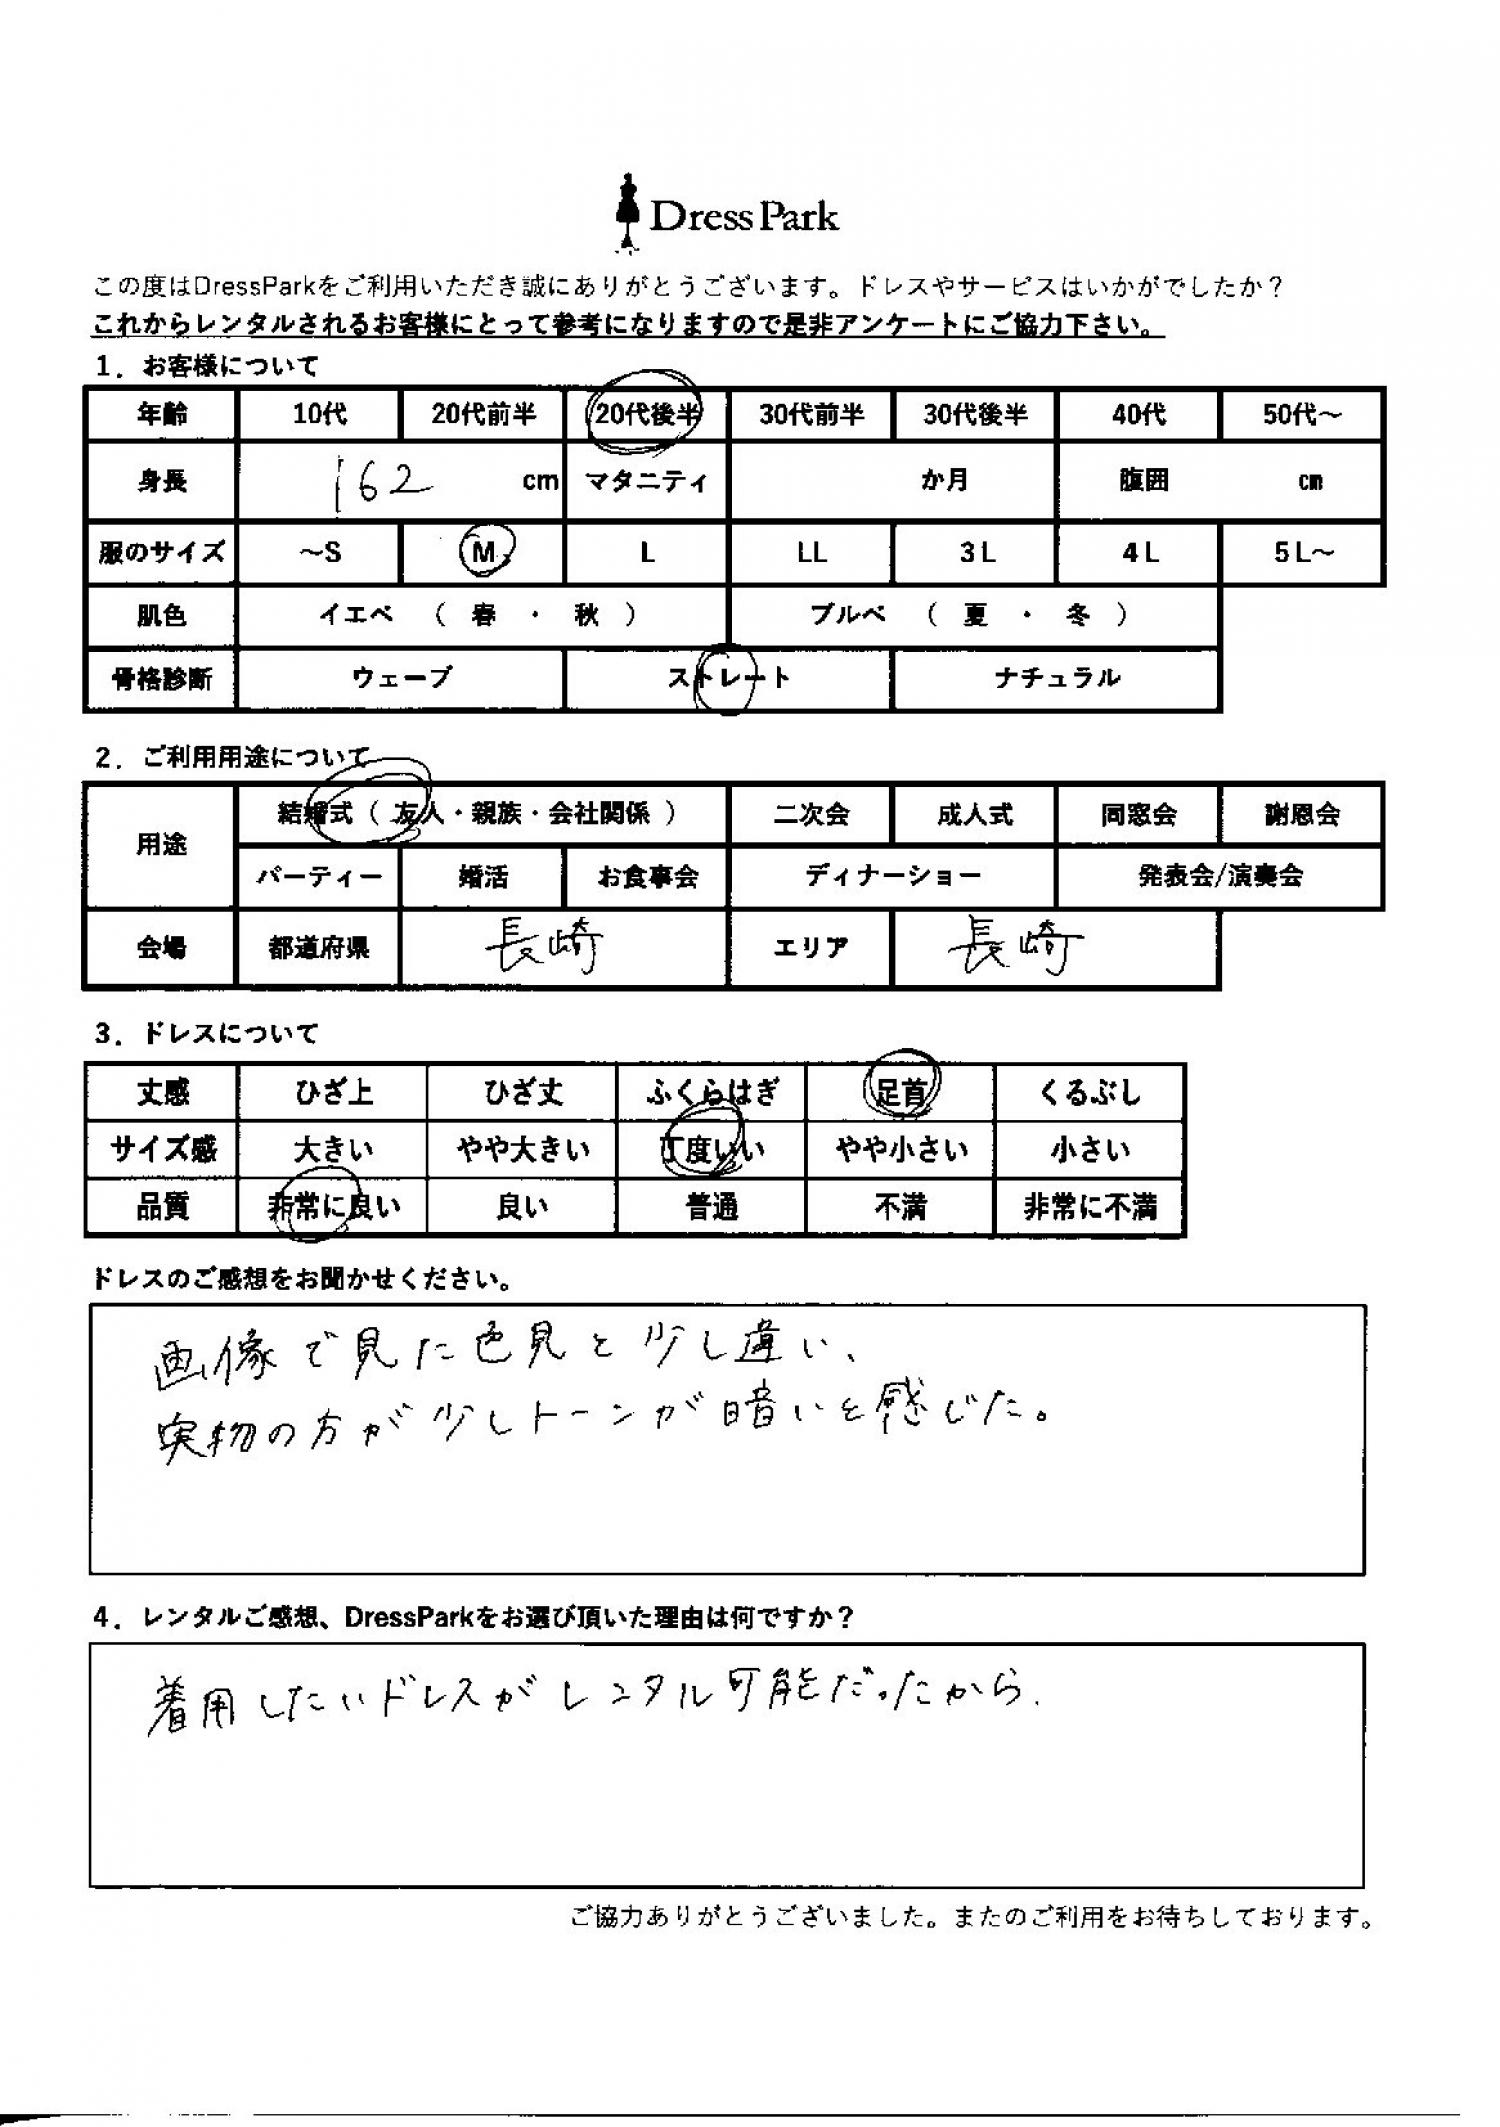 Dress Park
この度はDressParkをご利用いただき誠にありがとうございます。ドレスやサービスはいかがでしたか？
これからレンタルされるお客様にとって参考になりますので是非アンケートにご協力下さい。
1．お客様について
年齢 10代 20代前半 20代後半 30代前半 30代後半 40代 50代～
身長 162 cm マタニティ か月 腹囲 ㎝
服のサイズ ～S M L LL 3L 4L 5L～
肌色 イエベ （ 春 ・ 秋 ） ブルベ （ 夏 ・ 冬 ）
骨格診断 ウェーブ ストレート ナチュラル
2．ご利用用途について
用途 結婚式（ 友人・親族・会社関係 ） 二次会 成人式 同窓会 謝恩会
パーティー 婚活 お食事会 ディナーショー 発表会/演奏会
会場 都道府県 長崎 エリア 長崎
3．ドレスについて
丈感 ひざ上 ひざ丈 ふくらはぎ 足首 くるぶし
サイズ感 大きい やや大きい 丁度いい やや小さい 小さい
品質 非常に良い 良い 普通 不満 非常に不満
ドレスのご感想をお聞かせください。
画像で見た色見と少し違い、
実物の方が少しトーンが暗いと感じた。
4．レンタルご感想、DressParkをお選び頂いた理由は何ですか？
着用したいドレスがレンタル可能だったから、
ご協力ありがとうございました。またのご利用をお待ちしております。